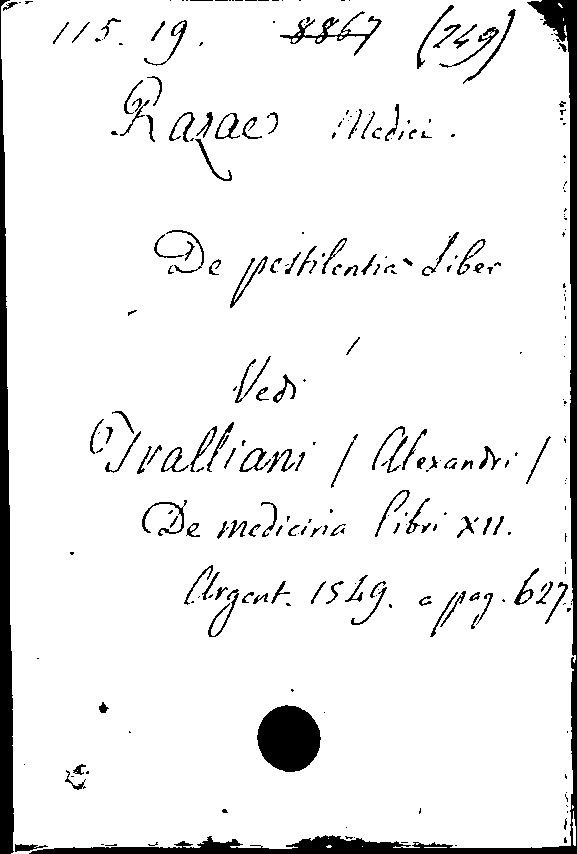 115. 19. 8867 (249)
Razae Medici.
De pestilentia Liber
Vedi
Tralliani / Alexandri /
De medicina libri XII.
Argent. 1549. a pag. 627.